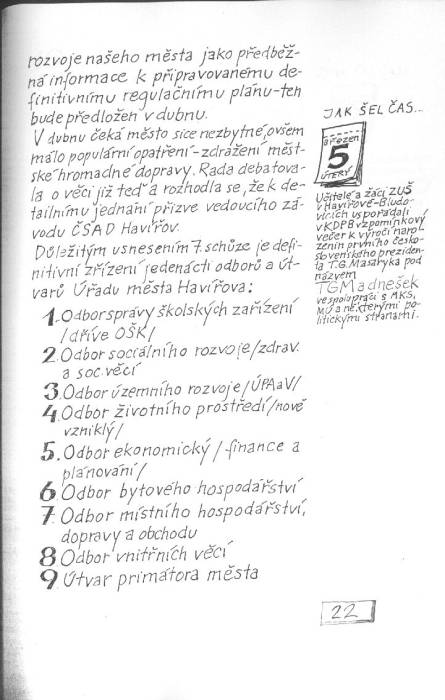 rozvoje našeho města jako předběž-
ná informace k připravovanému de-
finitivnímu regulačnímu plánu-ten
bude předložen v dubnu.
V dubnu čeká město sice nezbytné, ovšem
málo populární opatření-zdražení měst-
ské hromadné dopravy. Rada debatova-
la o věci již teď a rozhodla se, že k de-
tailnímu jednání přizve vedoucího zá-
vodu ČSAD Havířov.
Důležitým usnesením 7. schůze je defi-
nitivní zřízení jedenácti odborů a út-
varů Úřadu města Havířova:
1. Odbor správy školských zařízení
/dříve OŠK/
2. Odbor sociálního rozvoje/zdrav.
a soc. věcí
3. Odbor územního rozvoje/ÚPAaV/
4. Odbor životního prostředí/nově
vzniklý/
5. Odbor ekonomický/finance a
plánování/
6. Odbor bytového hospodářství
7. Odbor místního hospodářství,
dopravy a obchodu
8. Odbor vnitřních věcí
9. Útvar primátora města
JAK ŠEL ČAS...
březen
5
ÚTERÝ
Učitelé a žáci ZUŠ
v Havířově-Bludo-
vicích uspořádali
v KDPB vzpomínkový
večer k výročí naroz-
zenin prvního česko-
slovenského preziden-
ta T.G. Masaryka pod
názvem
TGM a dnešek
ve spolupráci s MKS,
MÚ a některými po-
litickými stranami.
22